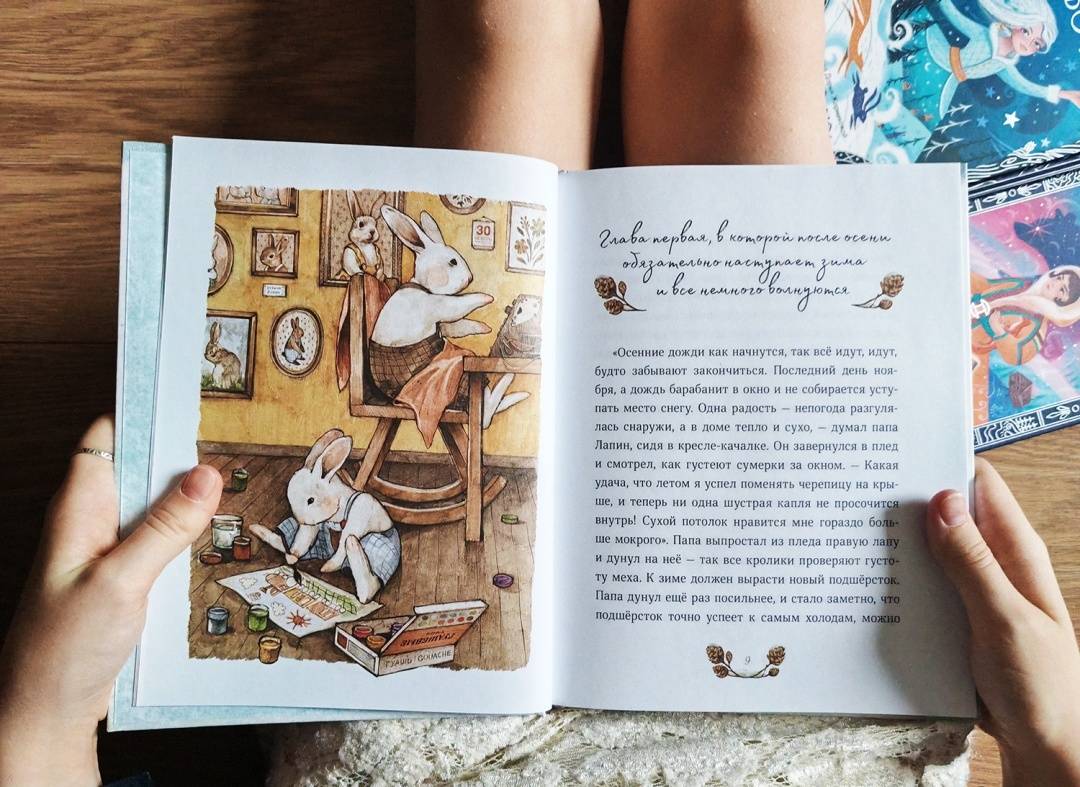 30
Глава первая, в которой после осени
обязательно наступает зима
и все немного волнуются
«Осенние дожди как начнутся, так всё идут, идут,
будто забывают закончиться. Последний день ноя-
бря, а дождь барабанит в окно и не собирается усту-
пать место снегу. Одна радость — непогода разгуля-
лась снаружи, а в доме тепло и сухо, — думал папа
Лапин, сидя в кресле-качалке. Он завернулся в плед
и смотрел, как густеют сумерки за окном. — Какая
удача, что летом я успел поменять черепицу на кры-
ше, и теперь ни одна шустрая капля не просочится
внутрь! Сухой потолок нравится мне гораздо боль-
ше мокрого». Папа выпростал из пледа правую лапу
и дунул на неё — так все кролики проверяют густо-
ту меха. К зиме должен вырасти новый подшёрсток.
Папа дунул ещё раз посильнее, и стало заметно, что
подшёрсток точно успеет к самым холодам, можно
ГУАШЬ GOUACHE
9